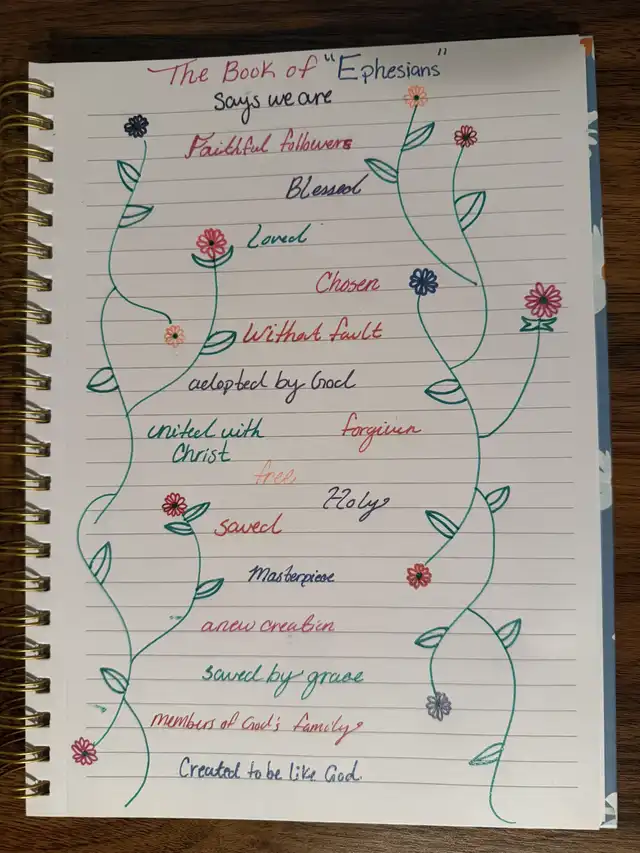 The Book of "Ephesians"
Says we are
Faithful followers
Blessed
Loved
Chosen
Without fault
adopted by God
united with
Christ
forgiven
free
Holy
saved
Masterpiece
a new creation
saved by grace
members of God's family
Created to be like God